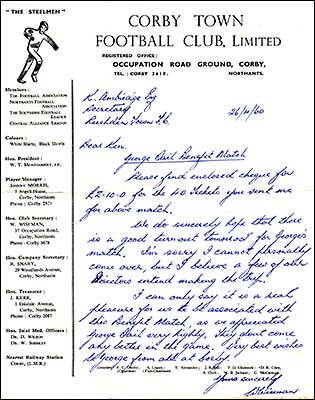 "THE STEELMEN"
CORBY TOWN
FOOTBALL CLUB, LIMITED
REGISTERED OFFICE:
OCCUPATION ROAD GROUND, CORBY,
TEL.: CORBY 2619. NORTHANTS.
Members:
THE FOOTBALL ASSOCIATION
NORTHANTS FOOTBALL
ASSOCIATION
THE SOUTHERN FOOTBALL
LEAGUE
CENTRAL ALLIANCE LEAGUE
Colours:
White Shirts, Black Shorts
Hon. President:
W. T. MONTGOMERY, J.P.
Player Manager:
JOHNNY MORRIS,
7 Angell House,
Corby, Northants
Phone: Corby 2821
Hon. Club Secretary:
W. WISEMAN,
37 Occupation Road,
Corby, Northants
Phone: Corby 3078
Hon. Company Secretary:
R. SNARY,
29 Woodlands Avenue,
Corby, Northants
Hon. Treasurer:
J. KERR,
1 Eskdale Avenue,
Corby, Northants
Phone: Corby 2087
Hon. Joint Med. Officers:
DR. D. WILSON
DR. W. SHIRLEY
Nearest Railway Station
CORBY, (L.M.R.)
K. Ambridge Esq
Secretary
Rushden Town F.C. 26/4/60
Dear Ken,
George Dail Benefit Match
Please find enclosed cheque for
£2-10-0 for the 40 tickets you sent me
for above match.
We do sincerely hope that there
is a good turnout tomorrow for George's
match. I'm sorry I cannot personally
come over, but I believe a few of our
Directors intend making the trip.
I can only say it is a real
pleasure for us to be associated with
this Benefit Match, as we appreciated
George Dail very highly. They don't come
any better in the game. Very best wishes
to George from all at Corby
Yours sincerely
W Wiseman